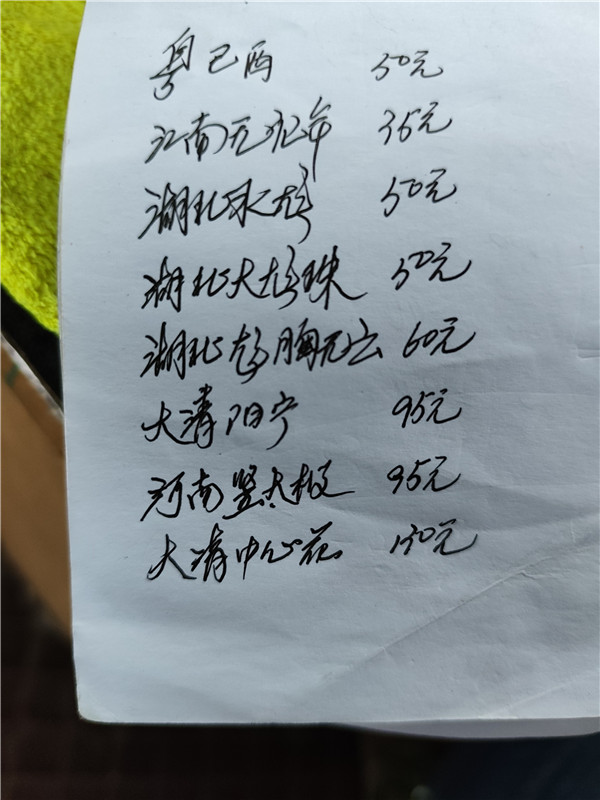 粤己酉 50元
江南无纪年 35元
湖北水龙 50元
湖北大龙珠 50元
湖北龙胸无云 60元
大清阳宁 95元
河南竖太极 95元
大清中心花 130元